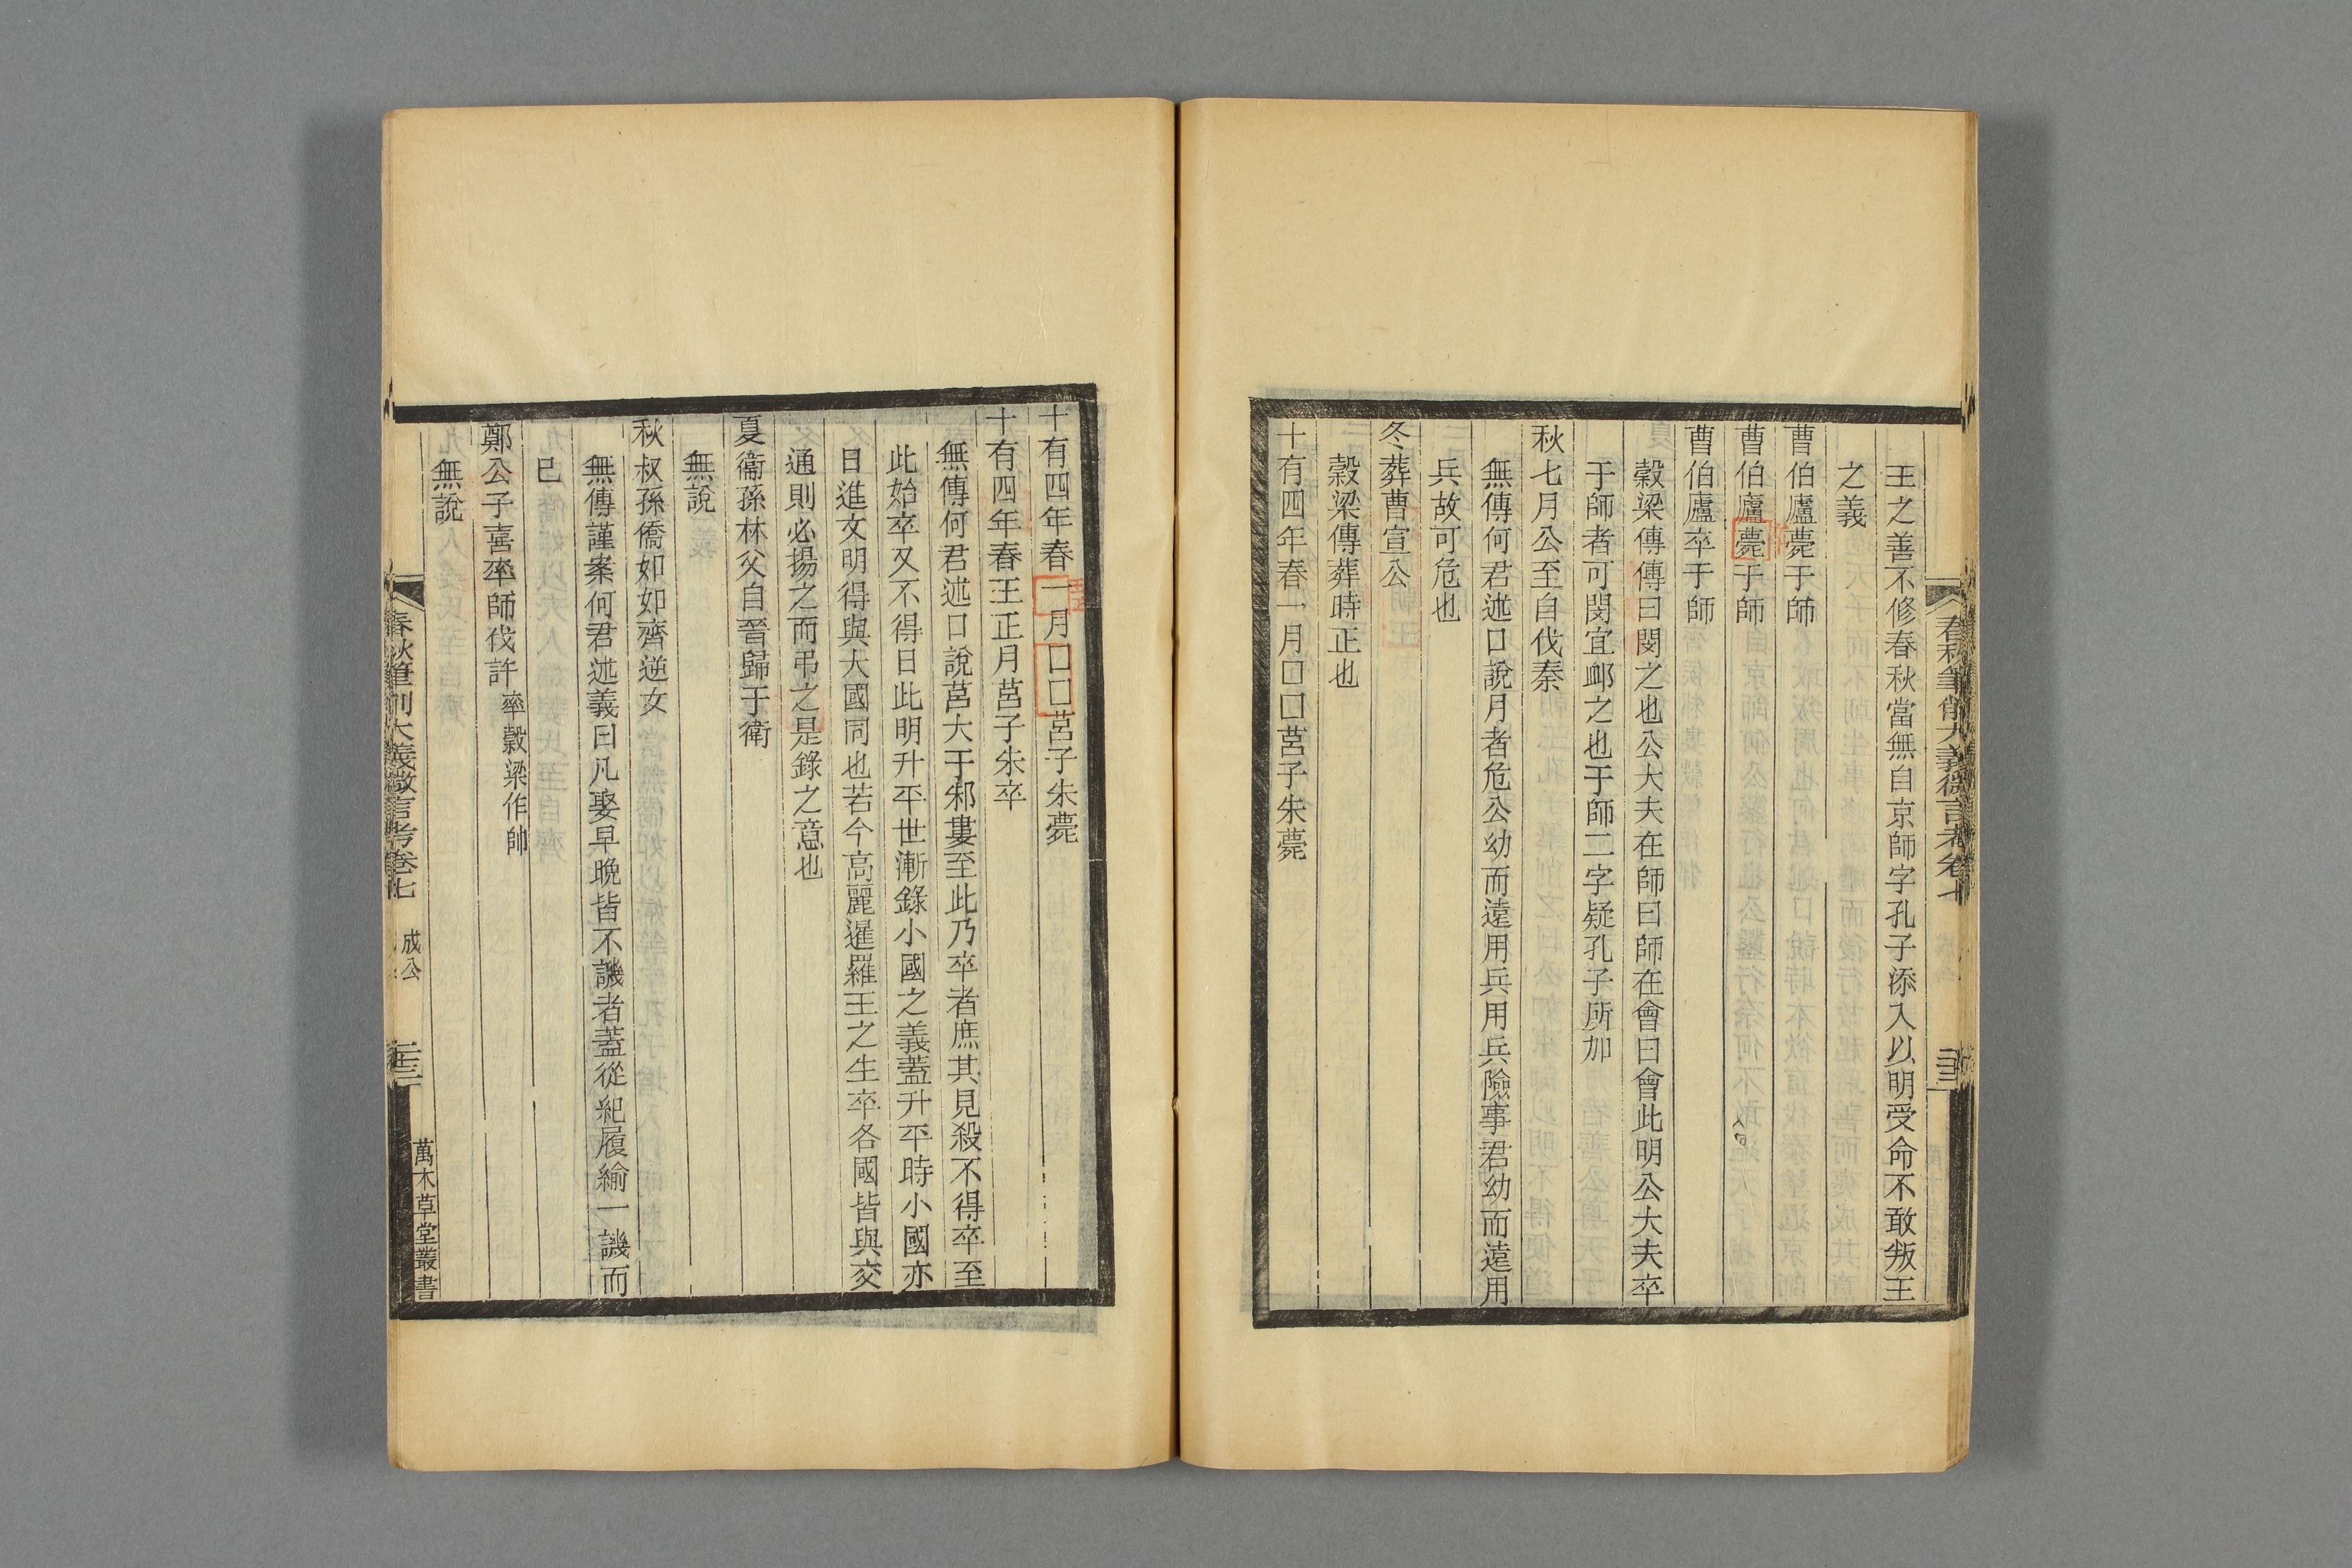 王之善不修春秋當無自京師字孔子添入以明受命不敢叛王
之義
曹伯廬薨于師
曹伯廬薨于師
曹伯廬卒于師
穀梁傳傳曰閔之也公大夫在師曰師在會曰會此明公大夫卒
于師者可閔宜卹之也于師二字疑孔子所加
秋七月公至自伐秦
無傳何君述口說月者危公幼而遠用兵用兵險事君幼而遠用
兵故可危也
冬葬曹宣公
穀梁傳葬時正也
十有四年春一月囗囗莒子朱薨
十有四年春一月囗囗莒子朱薨
十有四年春王正月莒子朱卒
無傳何君述口說莒大于邾婁至此乃卒者庶其見殺不得卒至
此始卒又不得日此明升平世漸錄小國之義蓋升平時小國亦
日進文明得與大國同也若今高麗暹羅王之生卒各國皆與交
通則必揚之而弔之是錄之意也
夏衞孫林父自晉歸于衛
無說
秋叔孫僑如如齊逆女
無傳謹案何君述義曰凡娶早晚皆不譏者蓋從紀履緰一譏而
已
鄭公子喜率師伐許 率穀梁作帥
無說
春秋筆削大義微言考卷七 成公
萬木草堂叢書